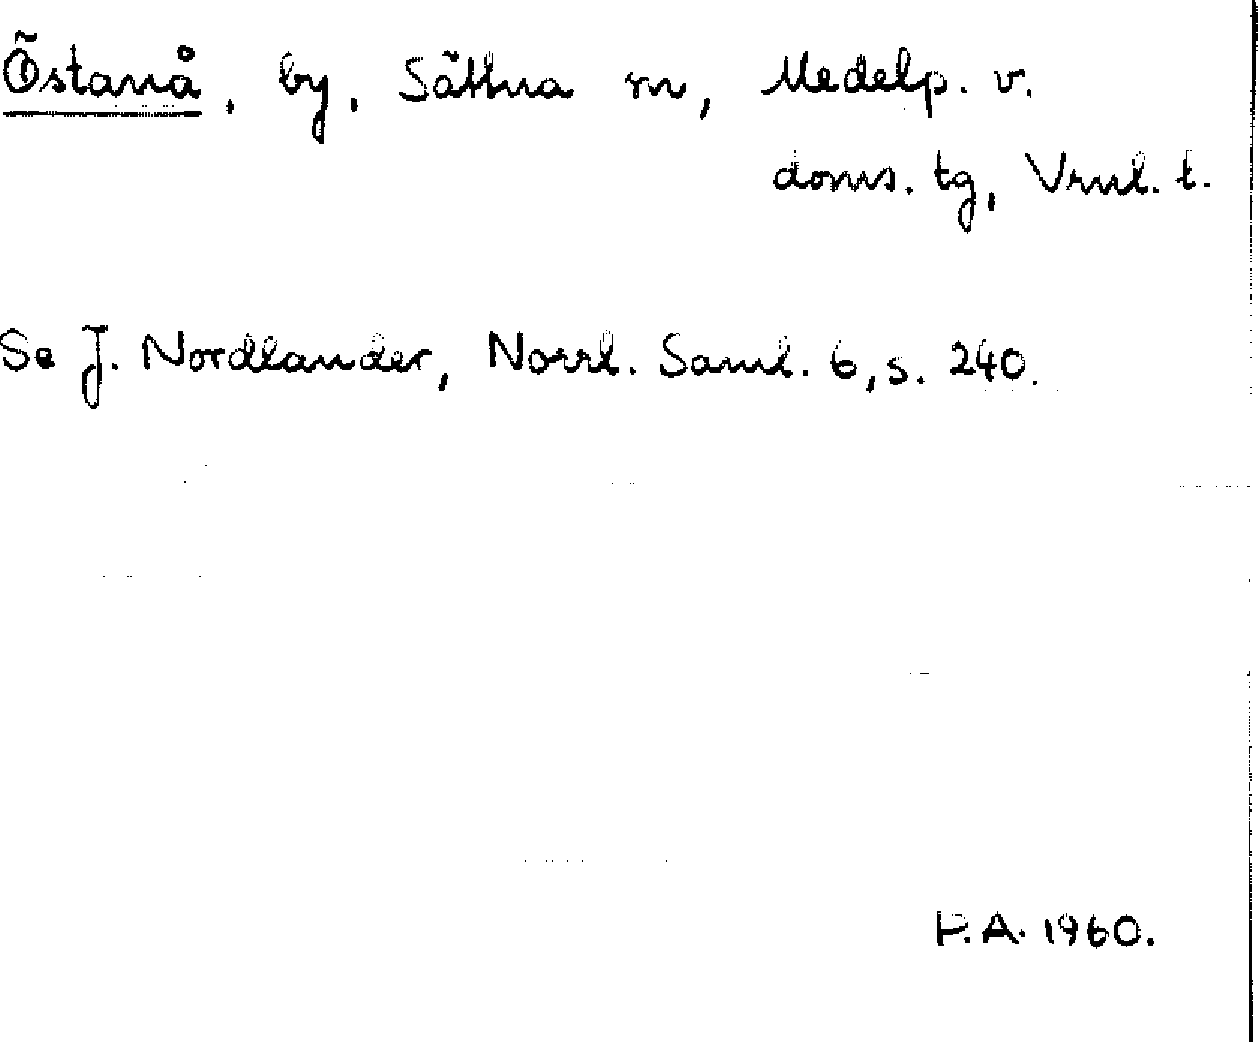 Östanå, by, Sättna sn, Medelp. v.
doms. tg, Vrnl. l.
Se J. Nordlander, Norrl. Saml. 6, s. 240.
P.A. 1960.